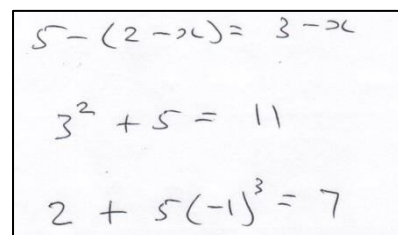 5 - (2 - x) = 3 - x
3² + 5 = 11
2 + 5(-1)³ = 7